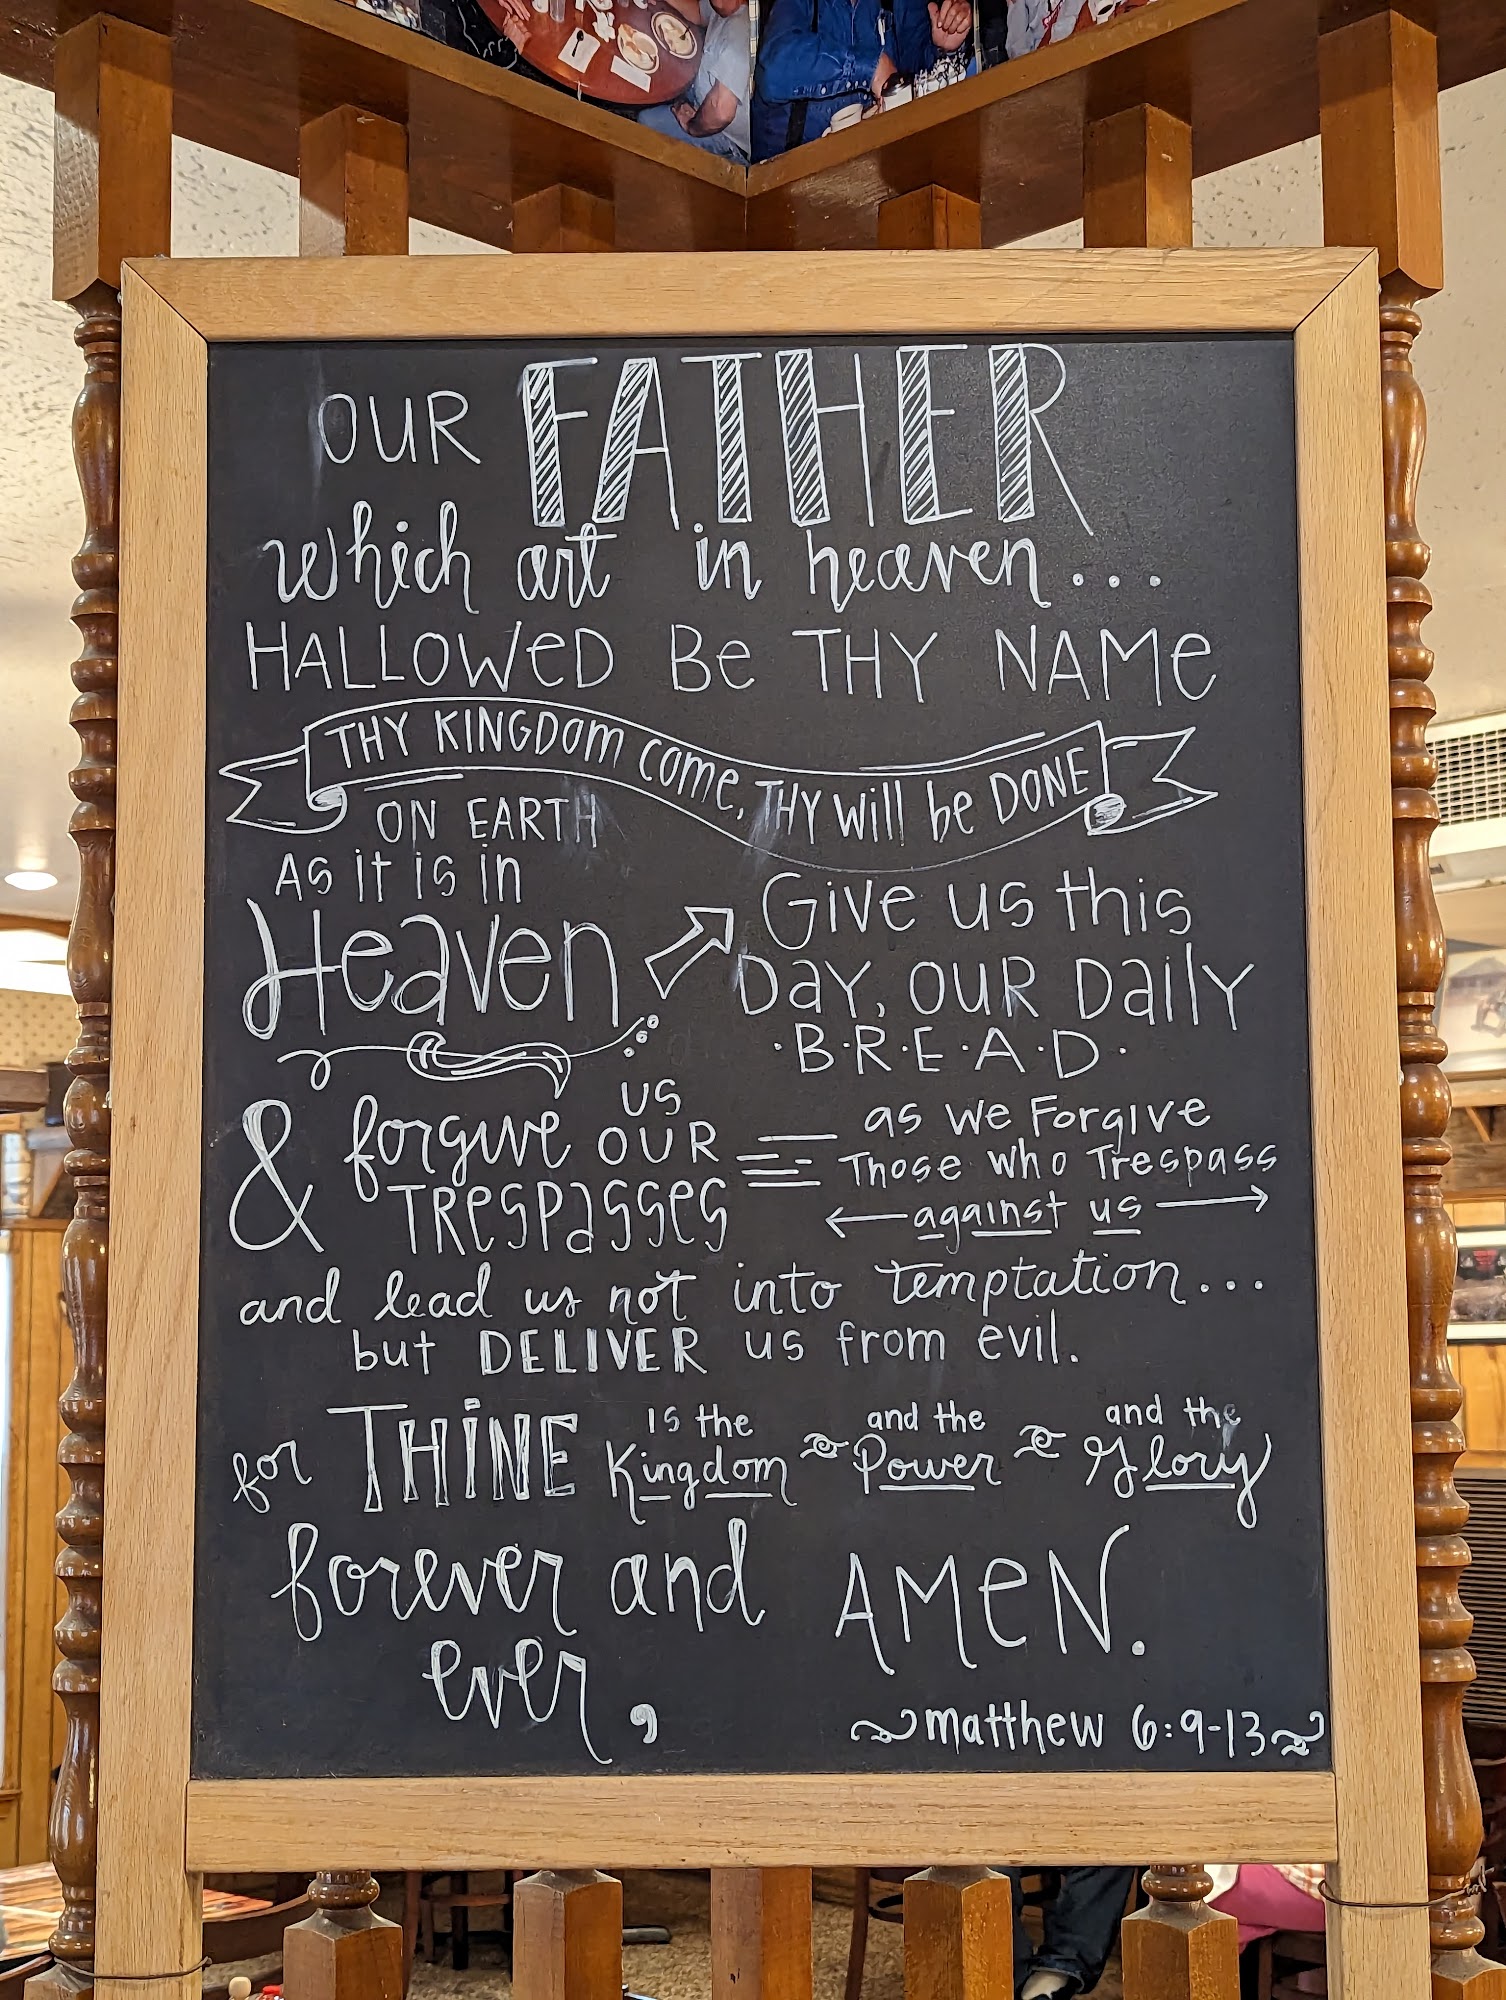 OUR FATHER
which art in heaven...
HALLOWeD Be THY NAMe
THY KINGDOm come, THY will be DONE
ON EARTH
AS iT iS in
Heaven
Give us this
Day, OUR Daily
·B·R·E·A·D·
& forgive us
OUR
TReSPasses
as we Forgive
Those who Trespass
against us
and lead us not into temptation...
but DELIVER us from evil.
for THiNE is the Kingdom and the Power and the Glory
forever and
ever,
AMeN.
matthew 6:9-13